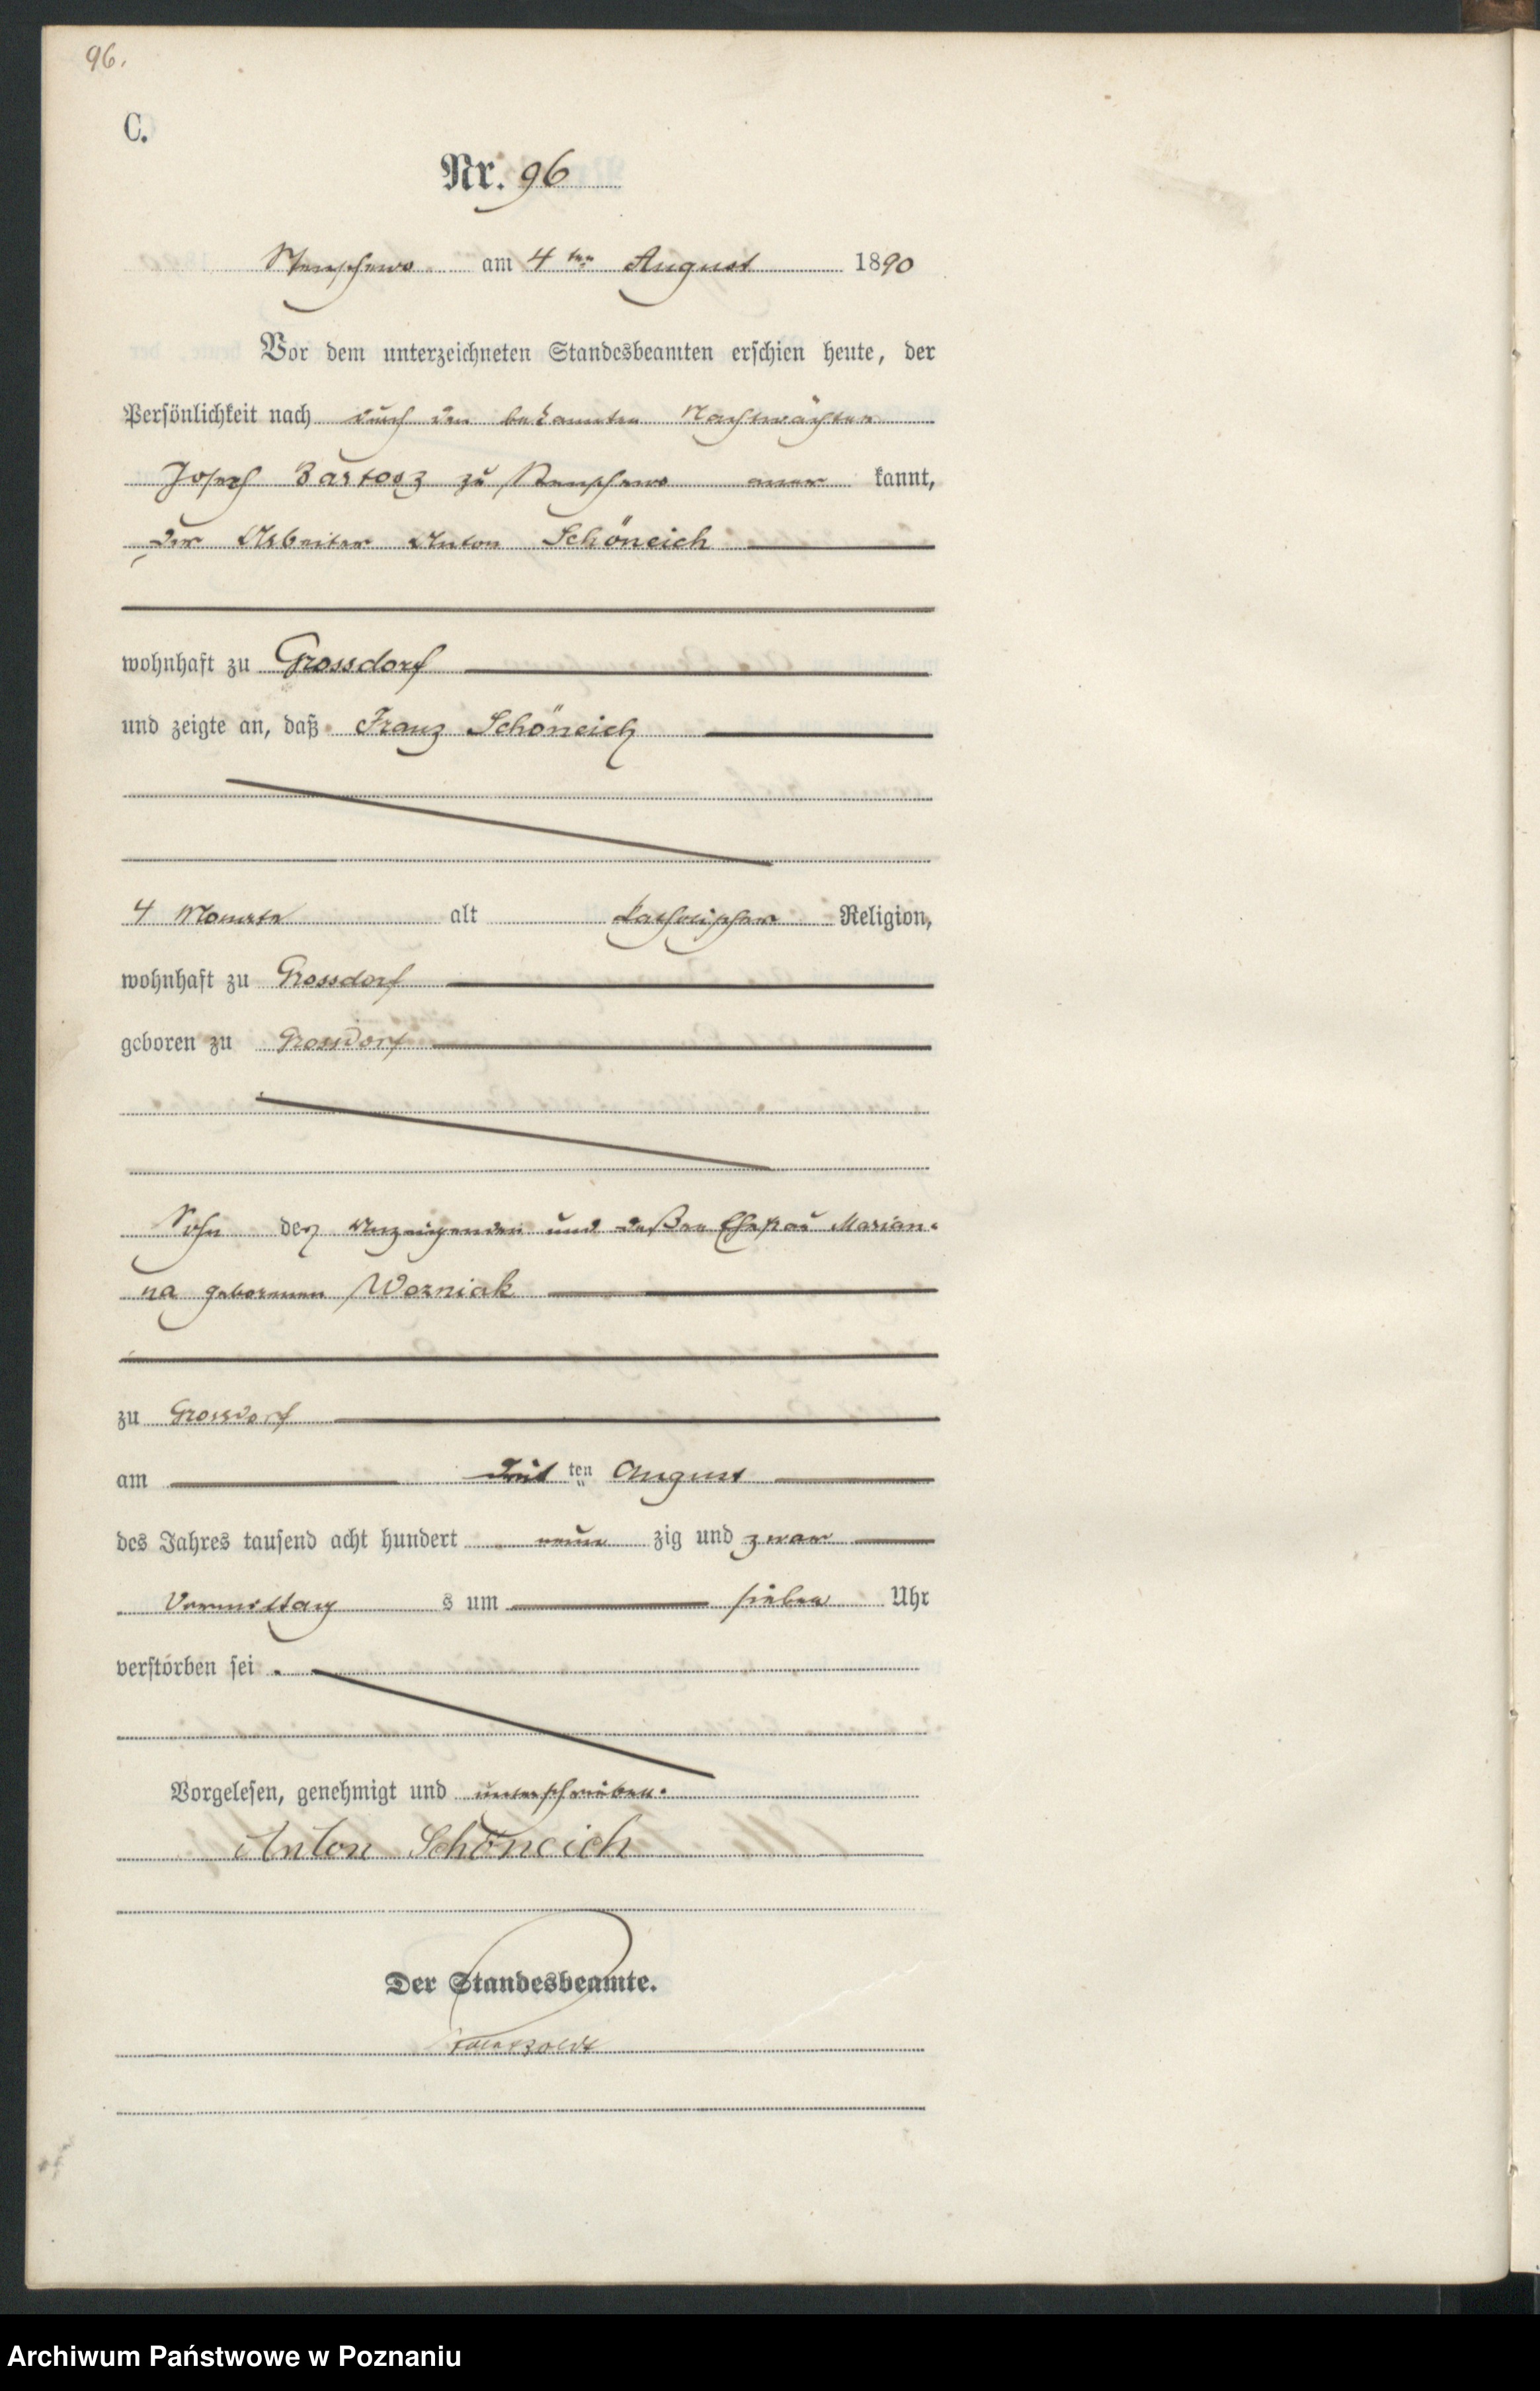 96.
C.
Nr. 96
Stenschewo am 4ten August 1890
Vor dem unterzeichneten Standesbeamten erschien heute, der
Persönlichkeit nach durch den bekannten Nachtwächter
Joseph Bartosz zu Stenschewo aner kannt,
der Arbeiter Anton Schöneich
wohnhaft zu Grossdorf
und zeigte an, daß Franz Schöneich
4 Monate alt katholischer Religion,
wohnhaft zu Grossdorf
geboren zu Grossdorf
Sohn des Anzeigenden und deßen Ehefrau Marian-
na geborenen Wozniak
zu Grossdorf
am Drit ten August
des Jahres tausend acht hundert neun zig und zwar
Vormittag s um sieben Uhr
verstorben sei .
Vorgelesen, genehmigt und unterschrieben.
Anton Schöneich
Der Standesbeamte.
Archiwum Państwowe w Poznaniu